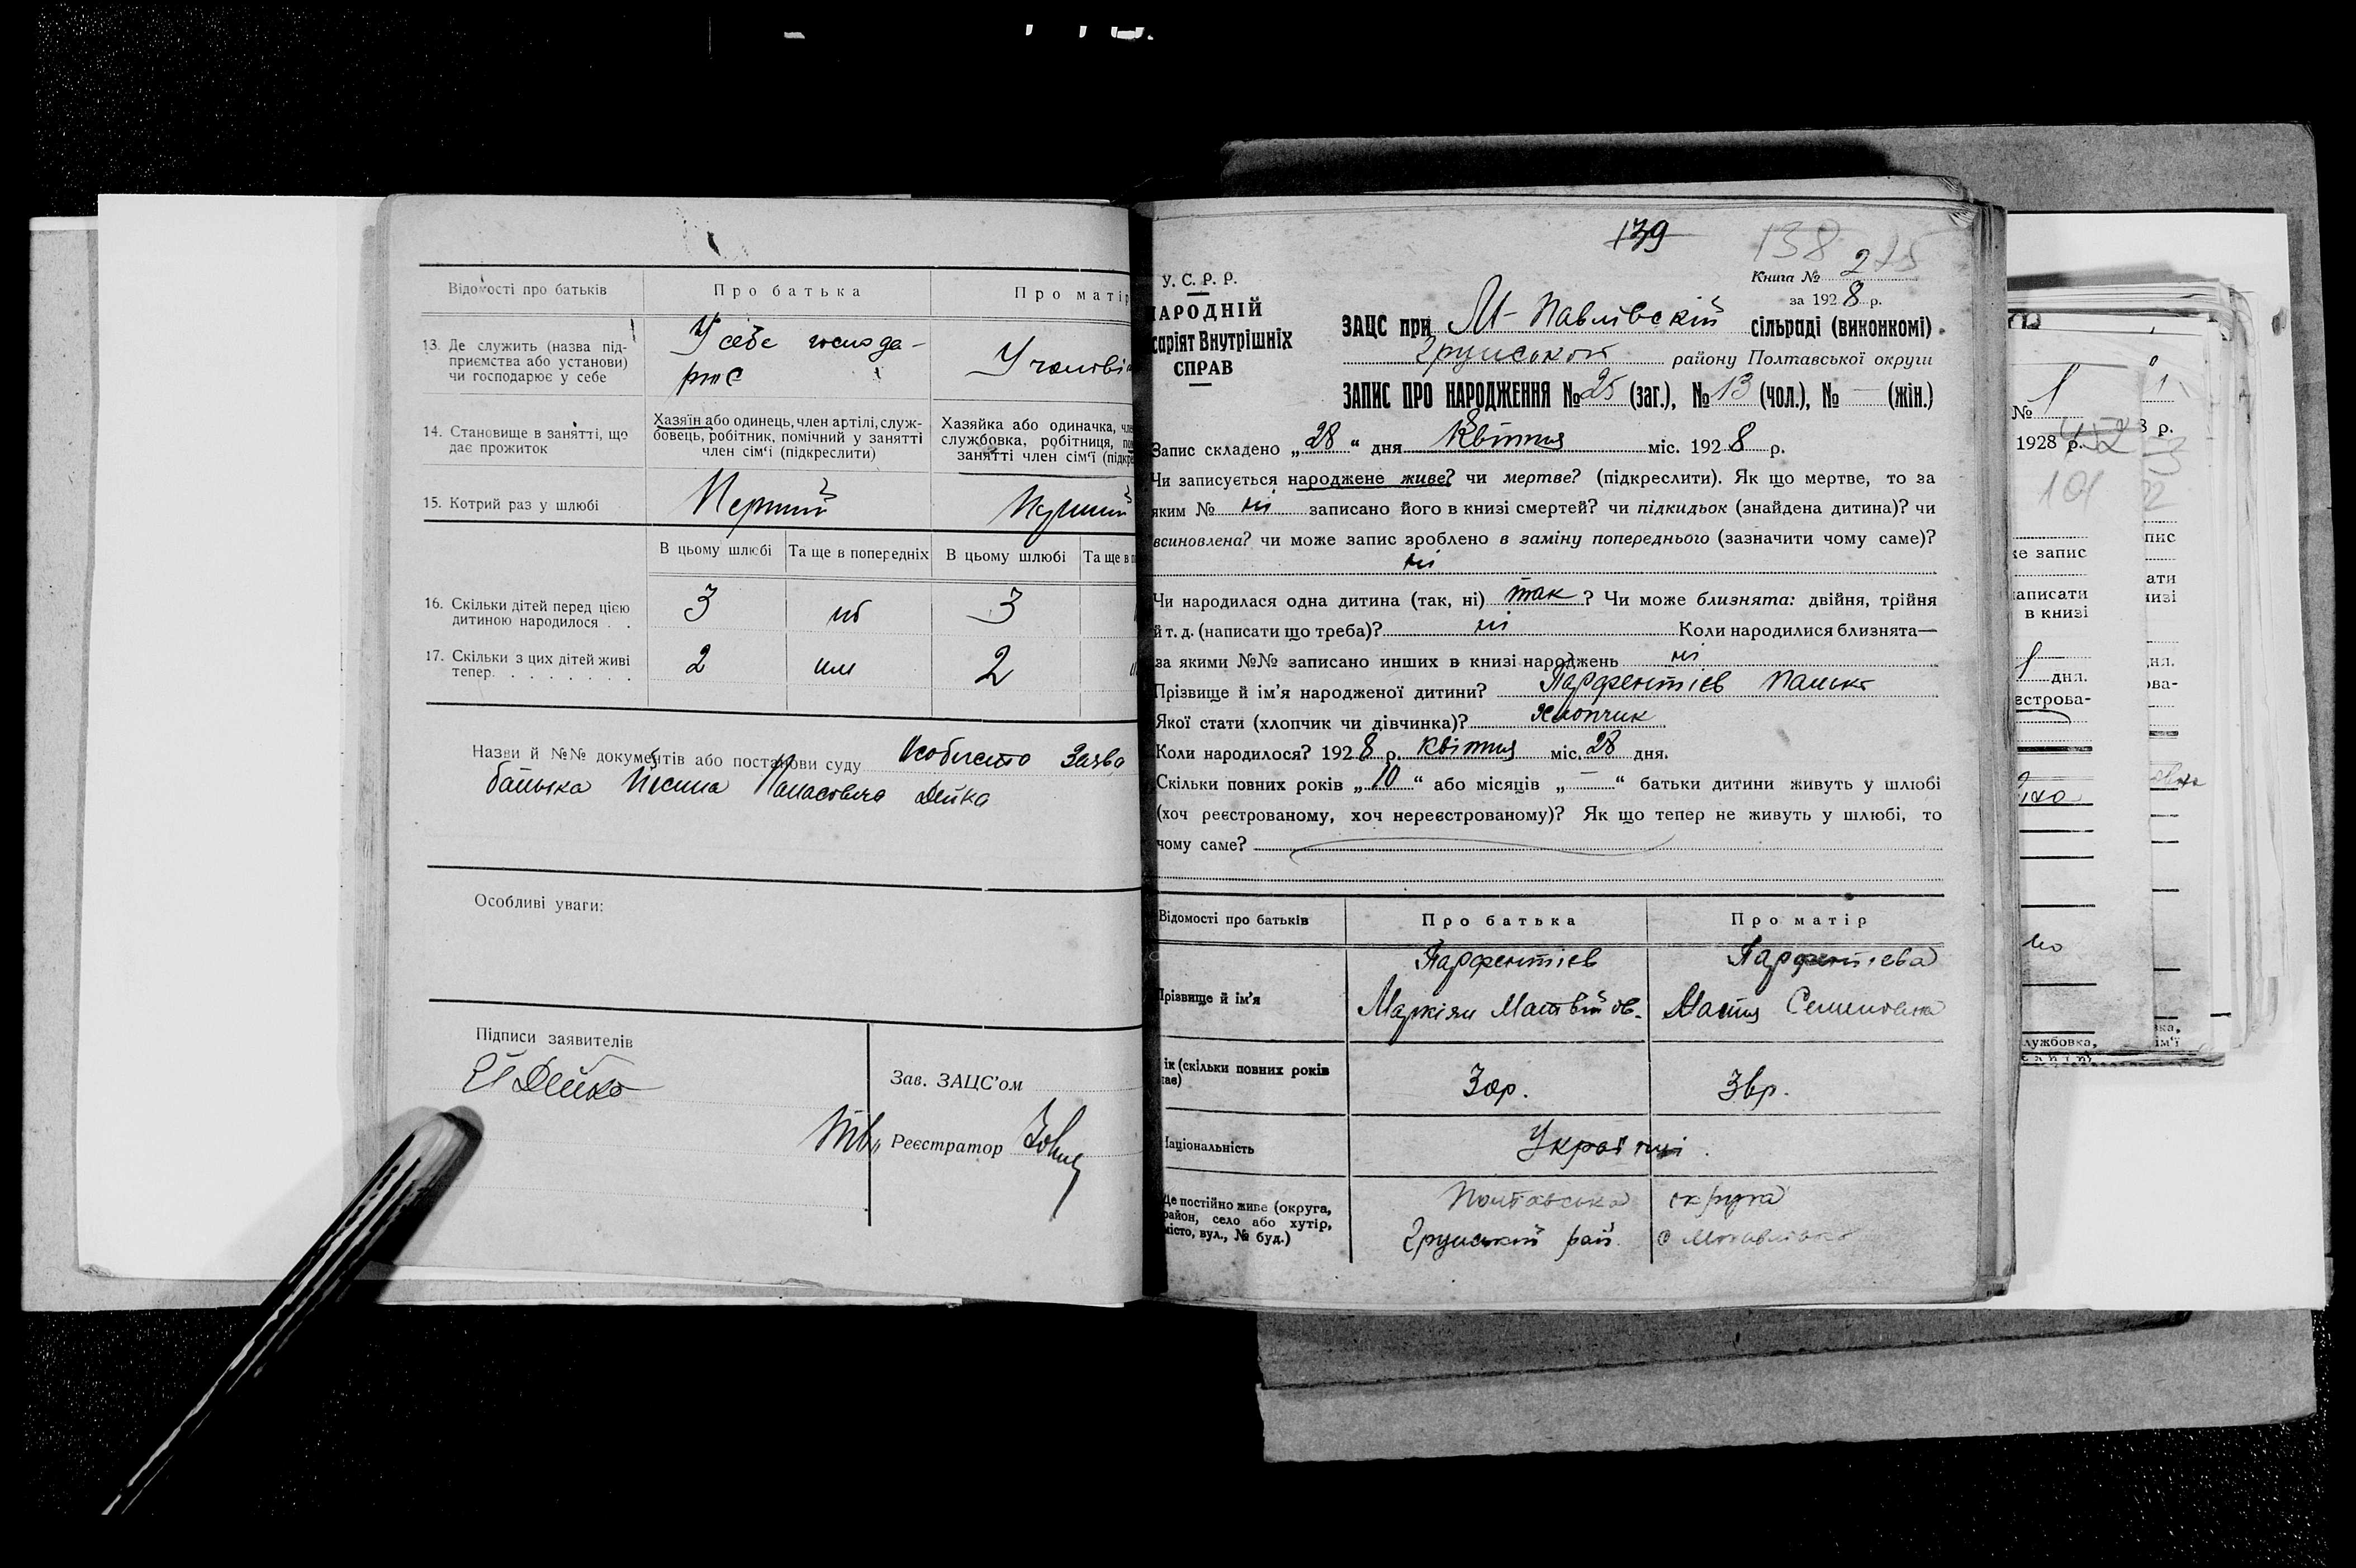 Відомості про батьків
Про батька
Про матір
13. Де служить (назва під-
приємства або установи)
чи господарює у себе
У себе господа-
рює
У чоловіка
14. Становище в занятті, що
дає прожиток
Хазяїн або одинець, член артілі, служ-
бовець, робітник, помічний у занятті
член сім'ї (підкреслити)
Хазяйка або одиначка, чле
службовка, робітниця, по
занятті член сім'ї (підкре
15. Котрий раз у шлюбі
Перший
Перший
В цьому шлюбі
Та ще в попередніх
В цьому шлюбі
Та ще в п
16. Скільки дітей перед цією
дитиною народилося . .
3
3
17. Скільки з цих дітей живі
тепер. . . . . . . .
2
2
Назви й №№ документів або постанови суду Особисто Заява
батька Йосипа Панасовича Дейка
Особливі уваги:
Підписи заявителів
Й Дейко
Зав. ЗАЦС'ом
Реєстратор
139
138
275
У. С. Р. Р.
НАРОДНІЙ
саріят Внутрішніх
СПРАВ
Книга № 2
за 1928 р.
ЗАЦС при М-Павлівскій сільраді (виконкомі)
Грунського району Полтавської округи
ЗАПИС ПРО НАРОДЖЕННЯ № 25 (заг.), № 13 (чол.), № — (жін.)
Запис складено „28“ дня Квітня міс. 1928 р.
Чи записується народжене живе? чи мертве? (підкреслити). Як що мертве, то за
яким № ні записано його в книзі смертей? чи підкидьок (знайдена дитина)? чи
всиновлена? чи може запис зроблено в заміну попереднього (зазначити чому саме)?
ні
Чи народилася одна дитина (так, ні) так? Чи може близнята: двійня, трійня
й т. д. (написати що треба)? ні Коли народилися близнята—
за якими №№ записано инших в книзі народжень ні
Прізвище й ім'я народженої дитини? Парфентіев Панько
Якої стати (хлопчик чи дівчинка)? Хлопчик
Коли народилося? 1928 р. квітня міс. 28 дня.
Скільки повних років „10“ або місяців „—“ батьки дитини живуть у шлюбі
(хоч реєстрованому, хоч нереєстрованому)? Як що тепер не живуть у шлюбі, то
чому саме?
Відомості про батьків
Про батька
Про матір
Прізвище й ім'я
Парфентіев
Маркіян Матвійов.
Парфентієва
Настя Семеновна
ік (скільки повних років
має)
Національність
Українці.
Де постійно живе (округа,
район, село або хутір,
місто, вул., № буд.)
Полтавська округа
Грунський рай.
№ 1
1928 р.
101
8 р.
пис
же запис
ати
написати
низі
в книзі
дня.
єстрова-
службовка,
ім'ї